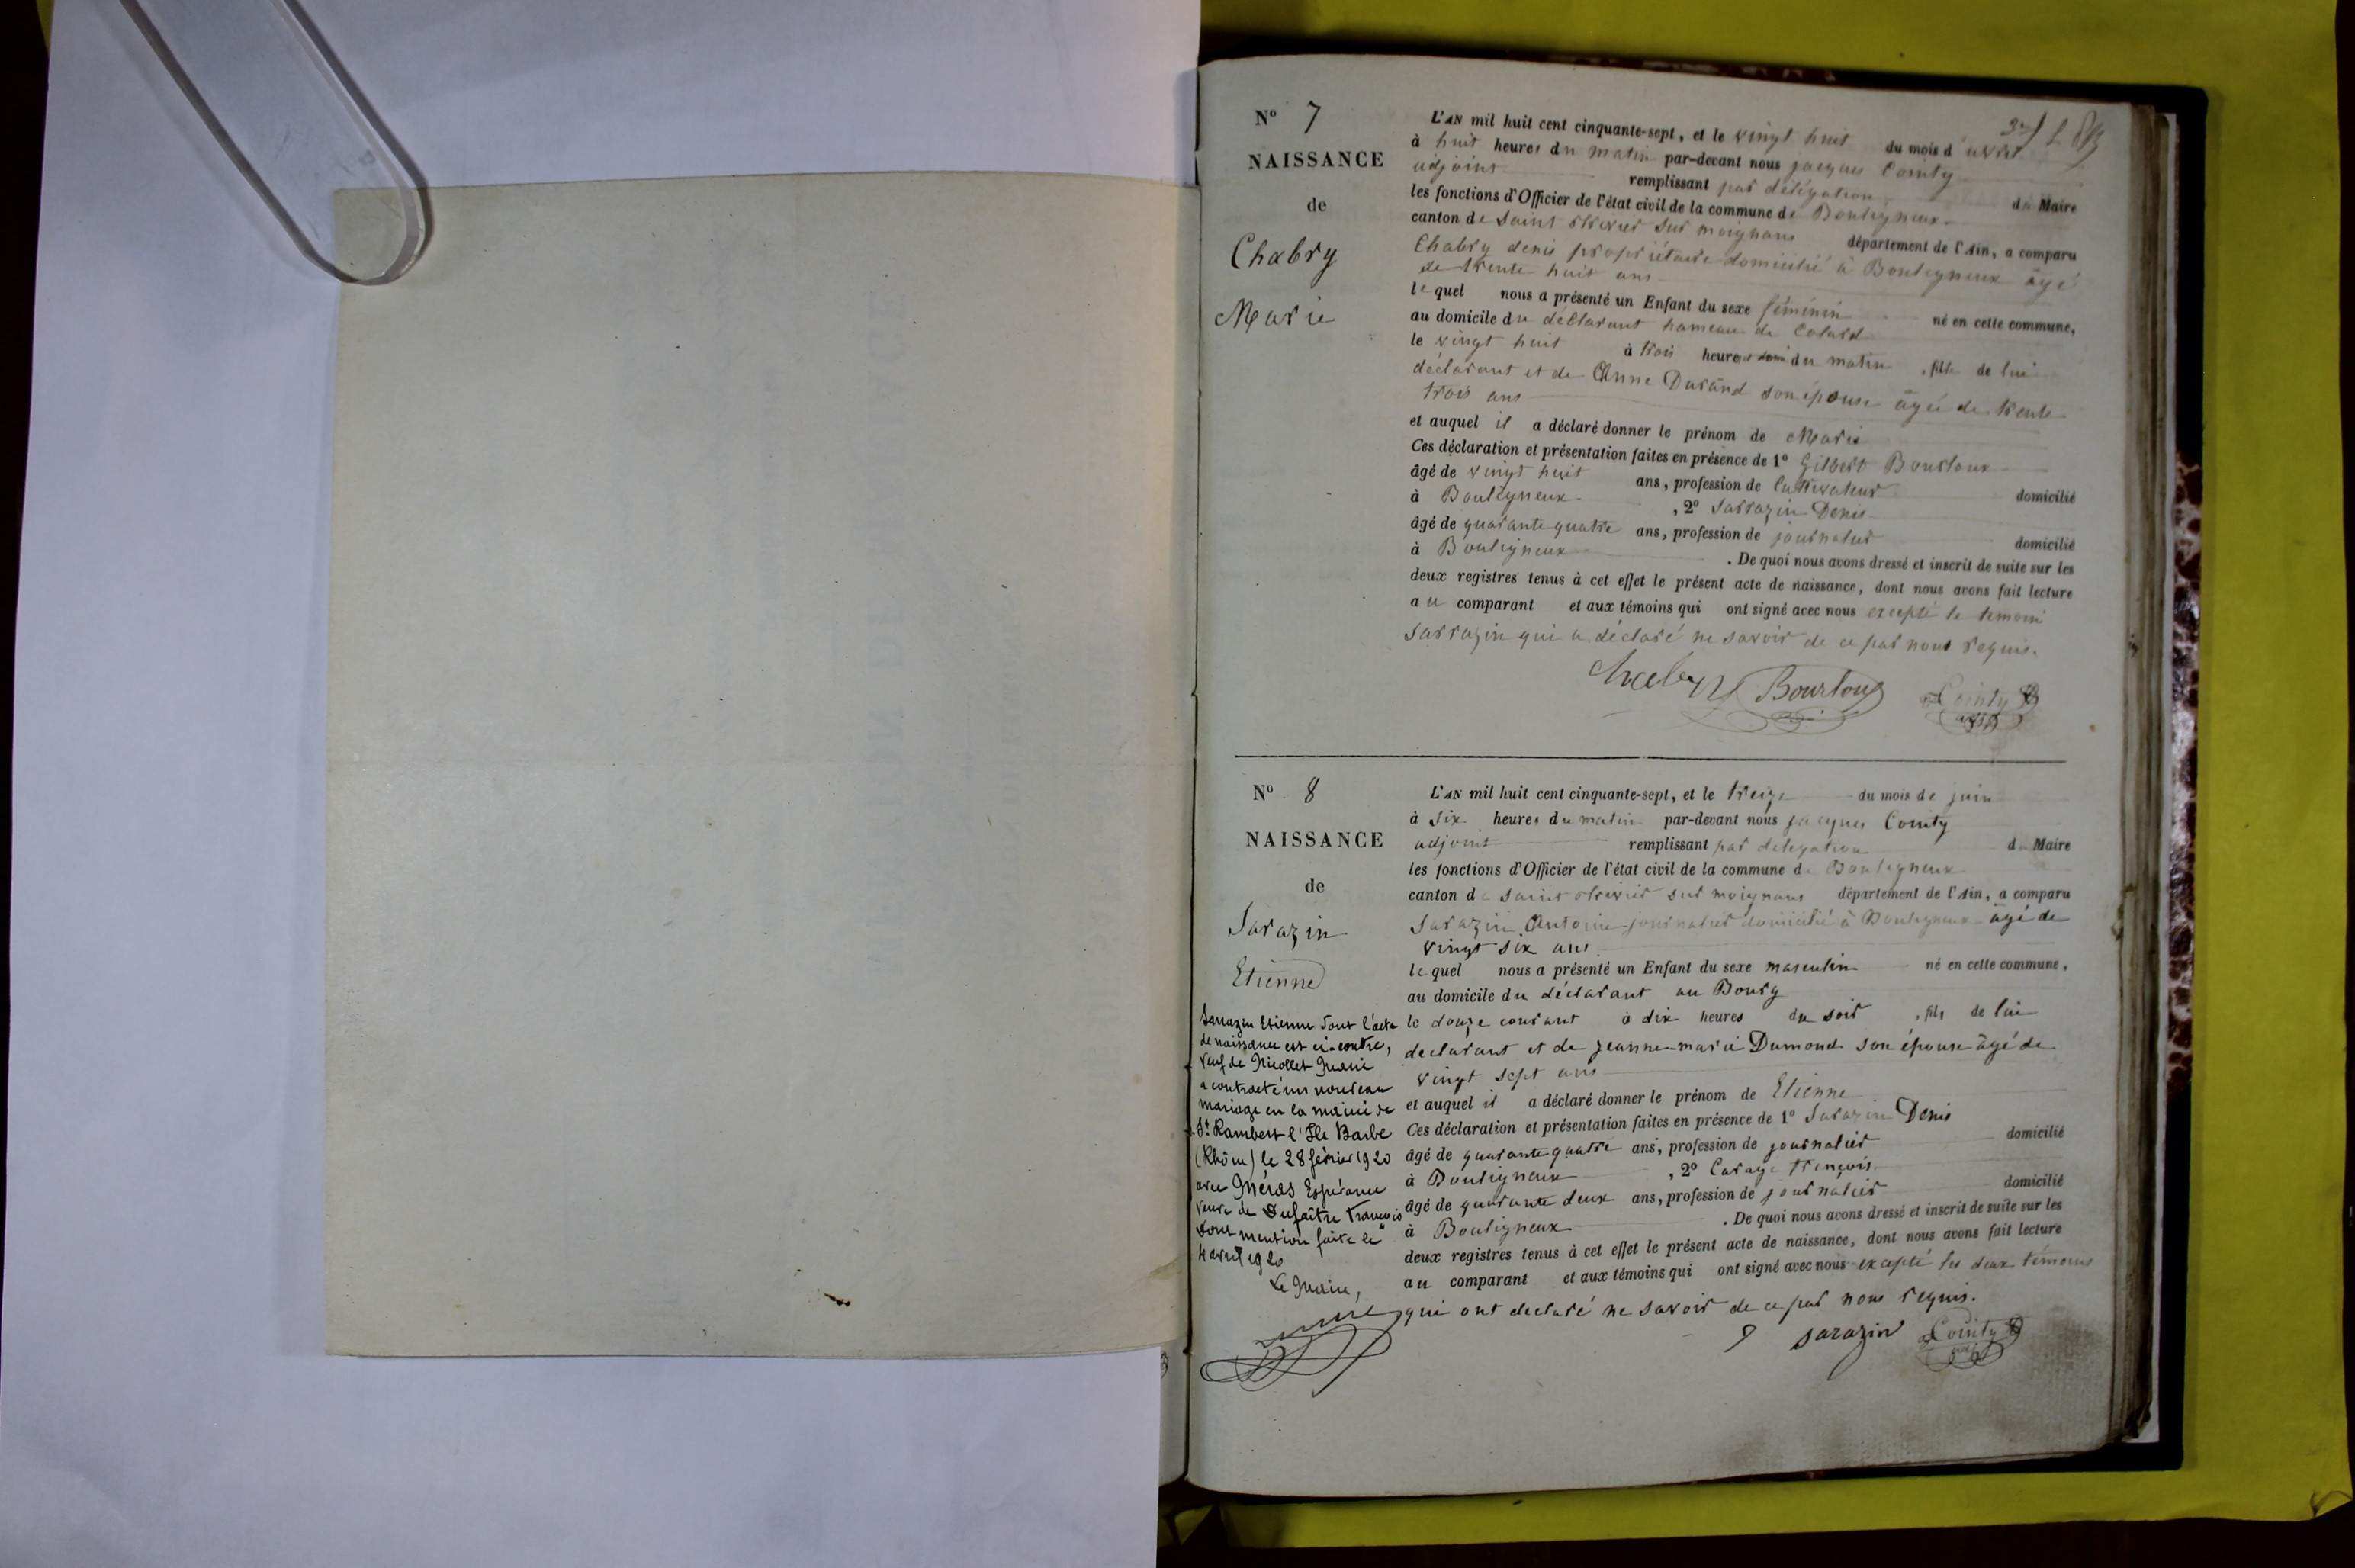 N° 7
NAISSANCE
de
Chabry
Marie
L'AN mil huit cent cinquante-sept, et le vingt huit du mois d'avril
à huit heures du matin par-devant nous jacques Cointy
adjoint remplissant par délégation du Maire
les fonctions d'Officier de l'état civil de la commune de Bouligneux
canton de Saint trivier sur moignans département de l'Ain, a comparu
Chabry denis propriétaire domicilié à Bouligneux âgé
de trente huit ans
lequel nous a présenté un Enfant du sexe féminin né en cette commune,
au domicile du déclarant hameau de
le vingt huit à trois heures du matin, fille de lui
déclarant et de Anne Durand son épouse âgée de trente
trois ans
et auquel il a déclaré donner le prénom de Marie
Ces déclaration et présentation faites en présence de 1° Gilbert Bourloux
âgé de vingt huit ans, profession de Cultivateur domicilié
à Bouligneux, 2° Sarrazin Denis
âgé de quarante quatre ans, profession de journalier domicilié
à Bouligneux. De quoi nous avons dressé et inscrit de suite sur les
deux registres tenus à cet effet le présent acte de naissance, dont nous avons fait lecture
au comparant et aux témoins qui ont signé avec nous excepté le temoin
Sarrazin qui a déclaré ne savoir de ce par nous requis.
Chabry Bourloux Cointy
N° 8
NAISSANCE
de
Sarazin
Etienne
L'AN mil huit cent cinquante-sept, et le treize du mois de juin
à six heures du matin par-devant nous jacques Cointy
adjoint remplissant par délégation du Maire
les fonctions d'Officier de l'état civil de la commune de Bouligneux
canton de Saint trivier sur moignans département de l'Ain, a comparu
Sarazin Antoine journalier domicilié à Bouligneux âgé de
vingt six ans
lequel nous a présenté un Enfant du sexe masculin né en cette commune,
au domicile du déclarant au Bourg
le douze courant à dix heures du soir, fils de lui
déclarant et de jeanne-marie Dumond son épouse âgé de
vingt sept ans
et auquel il a déclaré donner le prénom de Etienne
Ces déclaration et présentation faites en présence de 1° Sarazin Denis
âgé de quarante quatre ans, profession de journalier domicilié
à Bouligneux, 2° francois
âgé de quarante deux ans, profession de journalier domicilié
à Bouligneux. De quoi nous avons dressé et inscrit de suite sur les
deux registres tenus à cet effet le présent acte de naissance, dont nous avons fait lecture
au comparant et aux témoins qui ont signé avec nous excepté les deux témoins
qui ont déclaré ne savoir de ce par nous requis.
sarazin Cointy
Sarrazin Etienne dont l'acte
de naissance est ci-contre,
veuf de Nicollet Marie
a contracté un nouveau
mariage en la mairie de
St Rambert l'Ile Barbe
(Rhône) le 28 février 1920
avec Méras Espérance
veuve de Dufaître François
dont mention faite le
4 avril 1920
Le Maire,